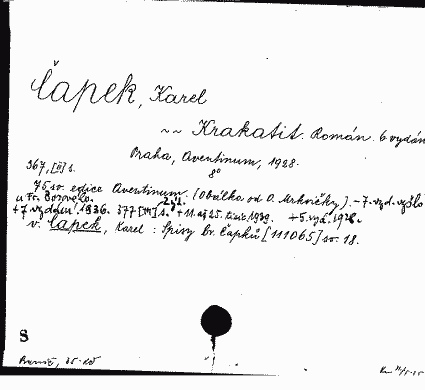 Čapek, Karel
~~ Krakatit. Román. 6 vydán
Praha, Aventinum, 1928.
8°
367, [II] s.
75 sv. edice Aventinum. (Obálka od O. Mrkvičky). – 7. vyd. vyšlo
u Fr. Borového.
+7 vydání 1936. 377 [III] s. +11 až 25. tisíc 1939. +5. vyd. 1928.
v. Čapek, Karel : Spisy br. Čapků [111065] sv. 18.
8